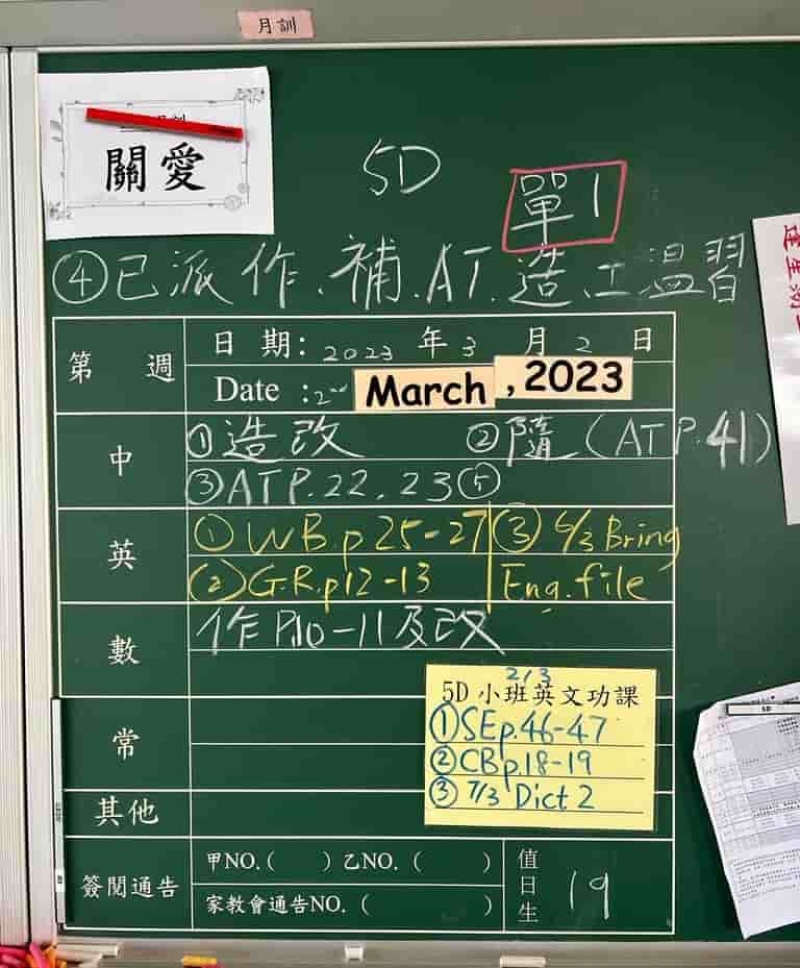 月訓
關愛
5D
單1
④已派作、補、AT、造工溫習
第 週
日 期: 2023 年 3 月 2 日
Date : 2nd March , 2023
中
①造改 ②隨(ATP.41)
③ATP.22, 23⑤
英
①WB.p25-27
(2)G.R.p12-13
③6/3 Bring
Eng. file
數
作P.10-11及改
2/3
5D 小班英文功課
①SEp.46-47
②CBp.18-19
③ 7/3 Dict 2
常
其他
簽閱通告
甲NO.( )乙NO.( )
家教會通告NO.( )
值日生
19